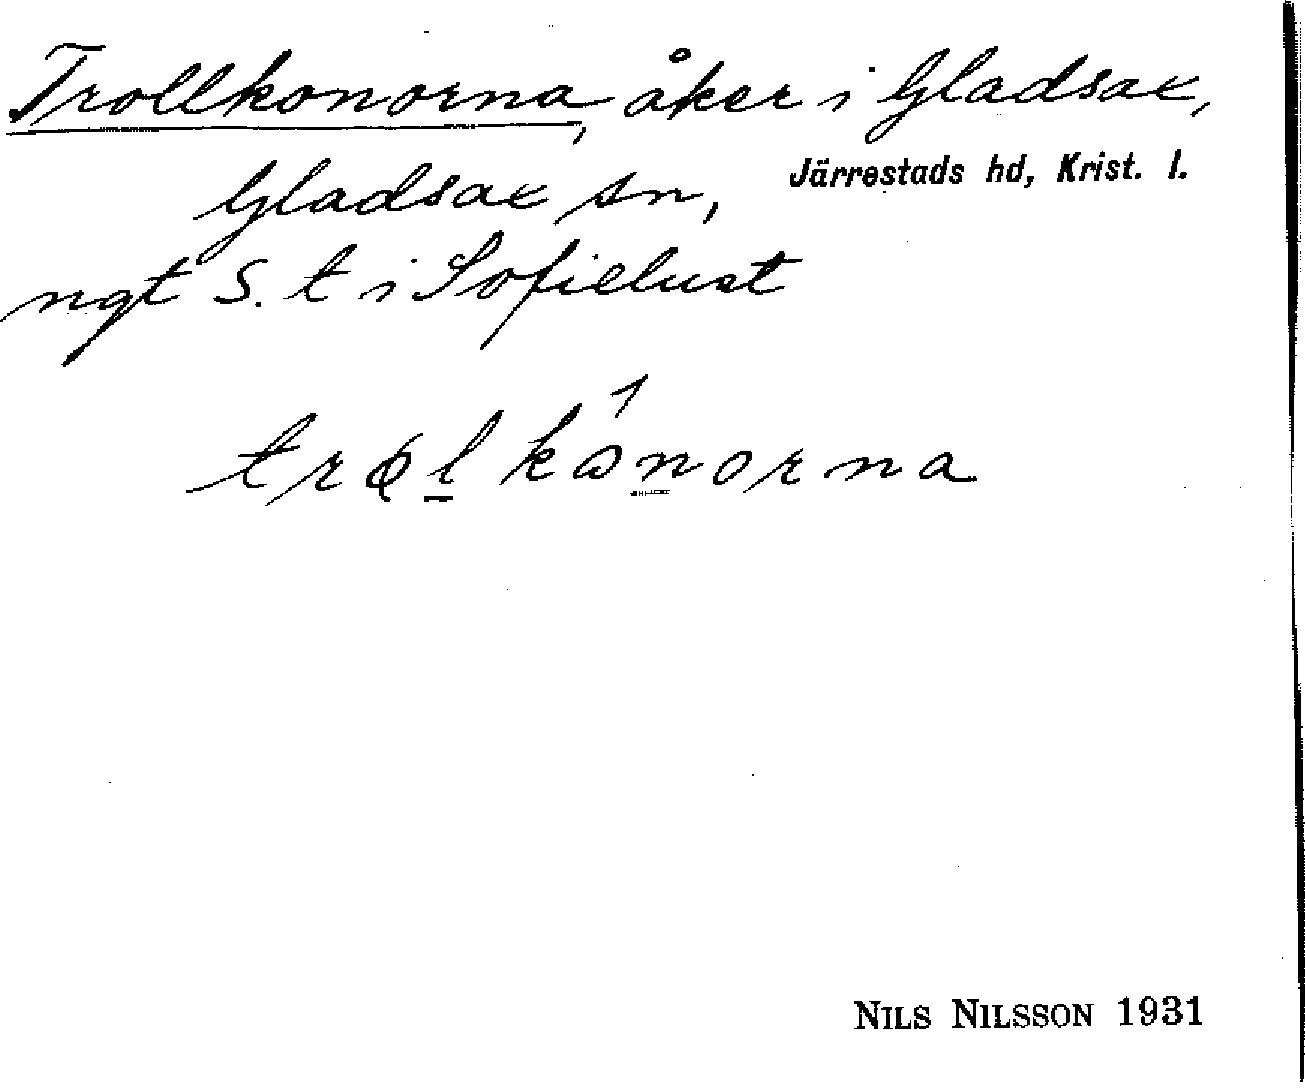 Trollkonorna, åker i Gladsax,
Gladsax sn, Järrestads hd, Krist. l.
ngt S. t i Sofielust
trɸl kånorna
NILS NILSSON 1931